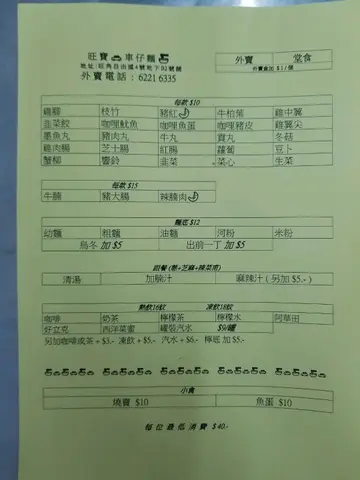 旺寶車仔麵
地址:旺角自由道4號地下B2號舖
外賣電話:6221 6335
外賣 堂食
外賣盒加$1/個
每款 $10
雞腳 枝竹 豬紅 牛柏葉 雞中翼
韭菜餃 咖喱魷魚 咖喱魚蛋 咖喱豬皮 雞翼尖
墨魚丸 豬肉丸 牛丸 貢丸 冬菇
雞肉腸 芝士腸 紅腸 蘿蔔 豆卜
蟹柳 響鈴 韭菜 菜心 生菜
每款 $15
牛腩 豬大腸 辣腩肉
麵底 $12
幼麵 粗麵 油麵 河粉 米粉
烏冬 加 $5 出前一丁 加 $5
跟餐 (蔥+芝麻+辣菜甫)
清湯 加腩汁 麻辣汁 (另加 $5.-)
熱飲16蚊 凍飲18蚊
咖啡 奶茶 檸檬茶 檸檬水 阿華田
好立克 西洋菜蜜 罐裝汽水 $9/罐
另加咖啡或茶 + $3.- 凍飲 + $5.- 汽水 + $6.- 檸底 加 $5.-
小食
燒賣 $10 魚蛋 $10
每位最低消費 $40.-